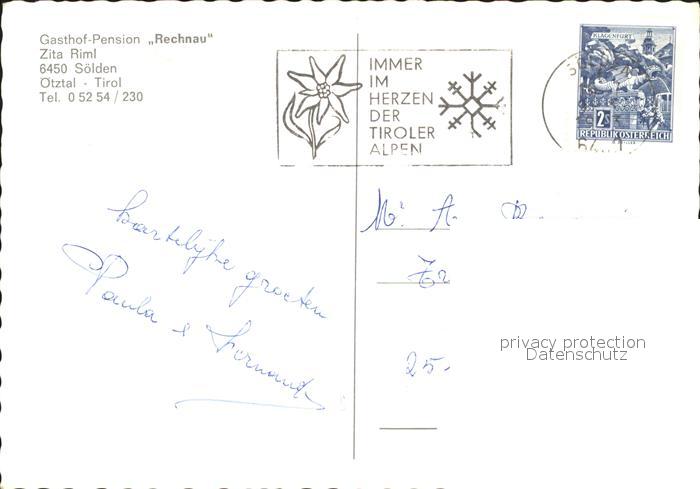 Gasthof-Pension „Rechnau"
Zita Riml
6450 Sölden
Ötztal - Tirol
Tel. 0 52 54 / 230
IMMER
IM
HERZEN
DER
TIROLER
ALPEN
KLAGENFURT
2S
REPUBLIK ÖSTERREICH
hartelijke groeten
Paula & Fernand
A.
25.
privacy protection
Datenschutz